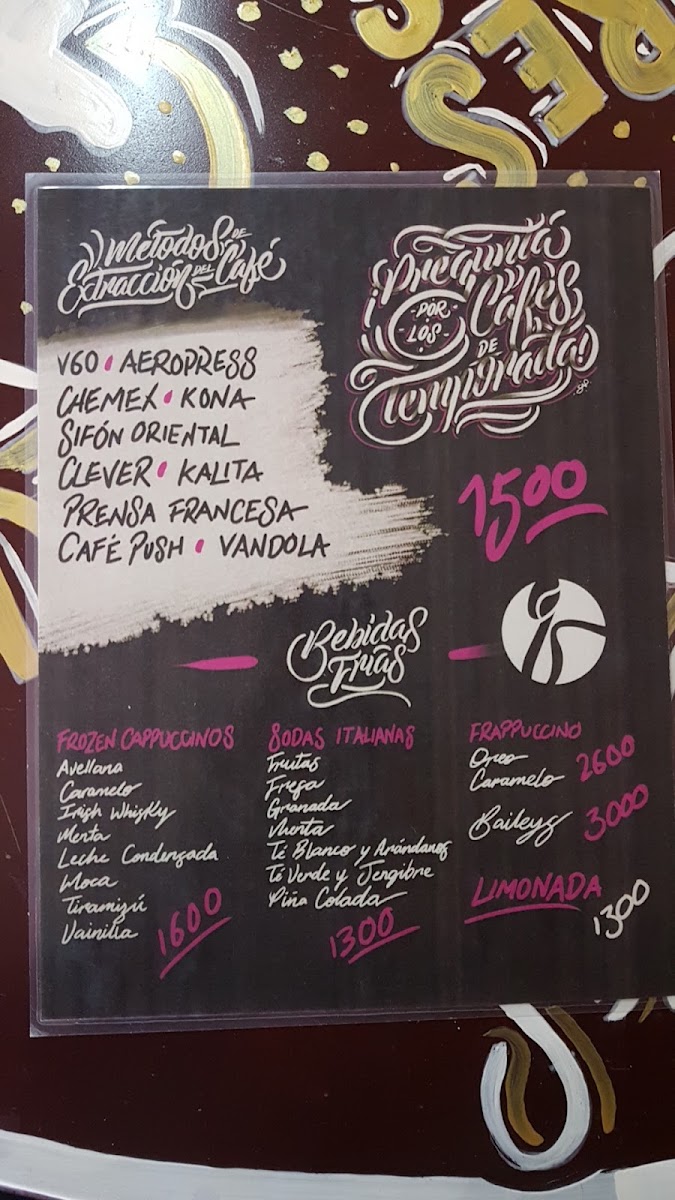 Métodos DE
Extracción DEL Café
V60 • AEROPRESS
CHEMEX • KONA
SIFÓN ORIENTAL
CLEVER • KALITA
PRENSA FRANCESA
CAFÉ PUSH • VANDOLA
¡Pregunta
POR LOS Cafés
DE
Temporada!
1500
Bebidas
Frías
FROZEN CAPPUCCINOS
Avellana
Caramelo
Irish Whisky
Menta
Leche Condensada
Moca
Tiramizú
Vainilla
1600
SODAS ITALIANAS
Frutas
Fresa
Granada
Menta
Té Blanco y Arándanos
Té Verde y Jengibre
Piña Colada
1300
FRAPPUCCINO
Oreo
Caramelo 2600
Baileys 3000
LIMONADA
1300